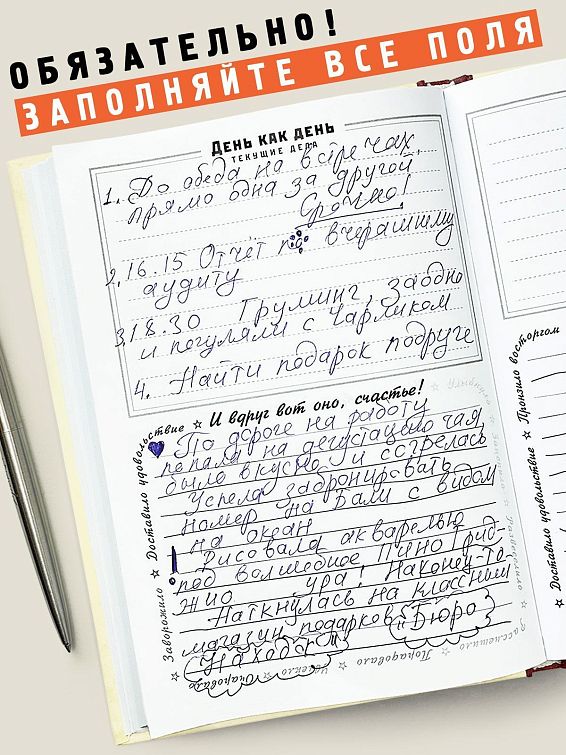 ОБЯЗАТЕЛЬНО!
ЗАПОЛНЯЙТЕ ВСЕ ПОЛЯ
День как день
текущие дела
1. До обеда на встречах,
прямо одна за другой
Срочно!
2. 16.15 Отчет по вчерашнему
аудиту
3. 18.30 Груминг, заодно
и погуляли с Чарликом
4. Найти подарок подруге
И вдруг вот оно, счастье!
По дороге на работу
попала на дегустацию чая
было вкусно и согрелась
Успела забронировать
номер на Бали с видом
на океан
! Рисовала акварелью
под волшебное Пино Гриджио
ура! Наконец-то
Наткнулась на классный
магазин подарков "Бюро
Находок"
Заворожило ☆ Доставило удовольствие ☆
Очаровало
☆ Порадовало ☆
Рассмешило
Улыбнуло
Доставило удовольствие ☆ Пронзило восторгом